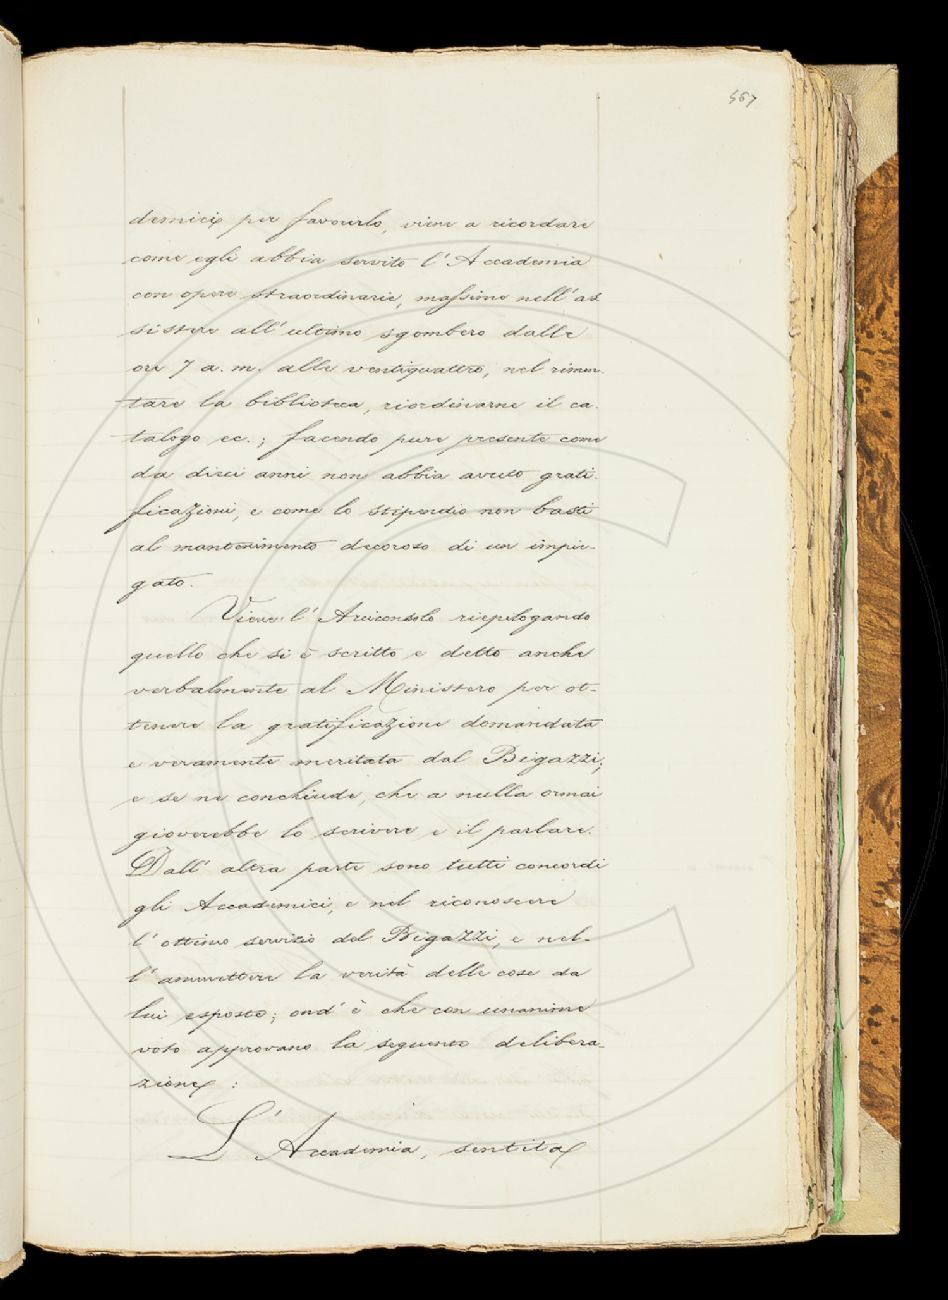 467
demici per favorirlo, viene a ricordare
come egli abbia servito l'Accademia
con opere straordinarie, massime nell'as-
sistere all'ultimo sgombero dalle
ore 7 a.m. alle ventiquattro, nel rimon-
tare la biblioteca, riordinarne il ca-
talogo ec.; facendo pure presente come
da dieci anni non abbia avuto grati-
ficazioni, e come lo stipendio non basti
al mantenimento decoroso di un impie-
gato.
Viene l'Arciconsolo riepilogando
quello che si è scritto e detto anche
verbalmente al Ministero per ot-
tenere la gratificazione domandata
e veramente meritata dal Bigazzi;
e se ne conchiude, che a nulla ormai
gioverebbe lo scrivere e il parlare.
Dall'altra parte sono tutti concordi
gli Accademici, e nel riconoscere
l'ottimo servizio del Bigazzi, e nel-
l'ammettere la verità delle cose da
lui esposte; ond'è che con unanime
voto approvano la seguente delibera-
zione:
L'Accademia, sentita